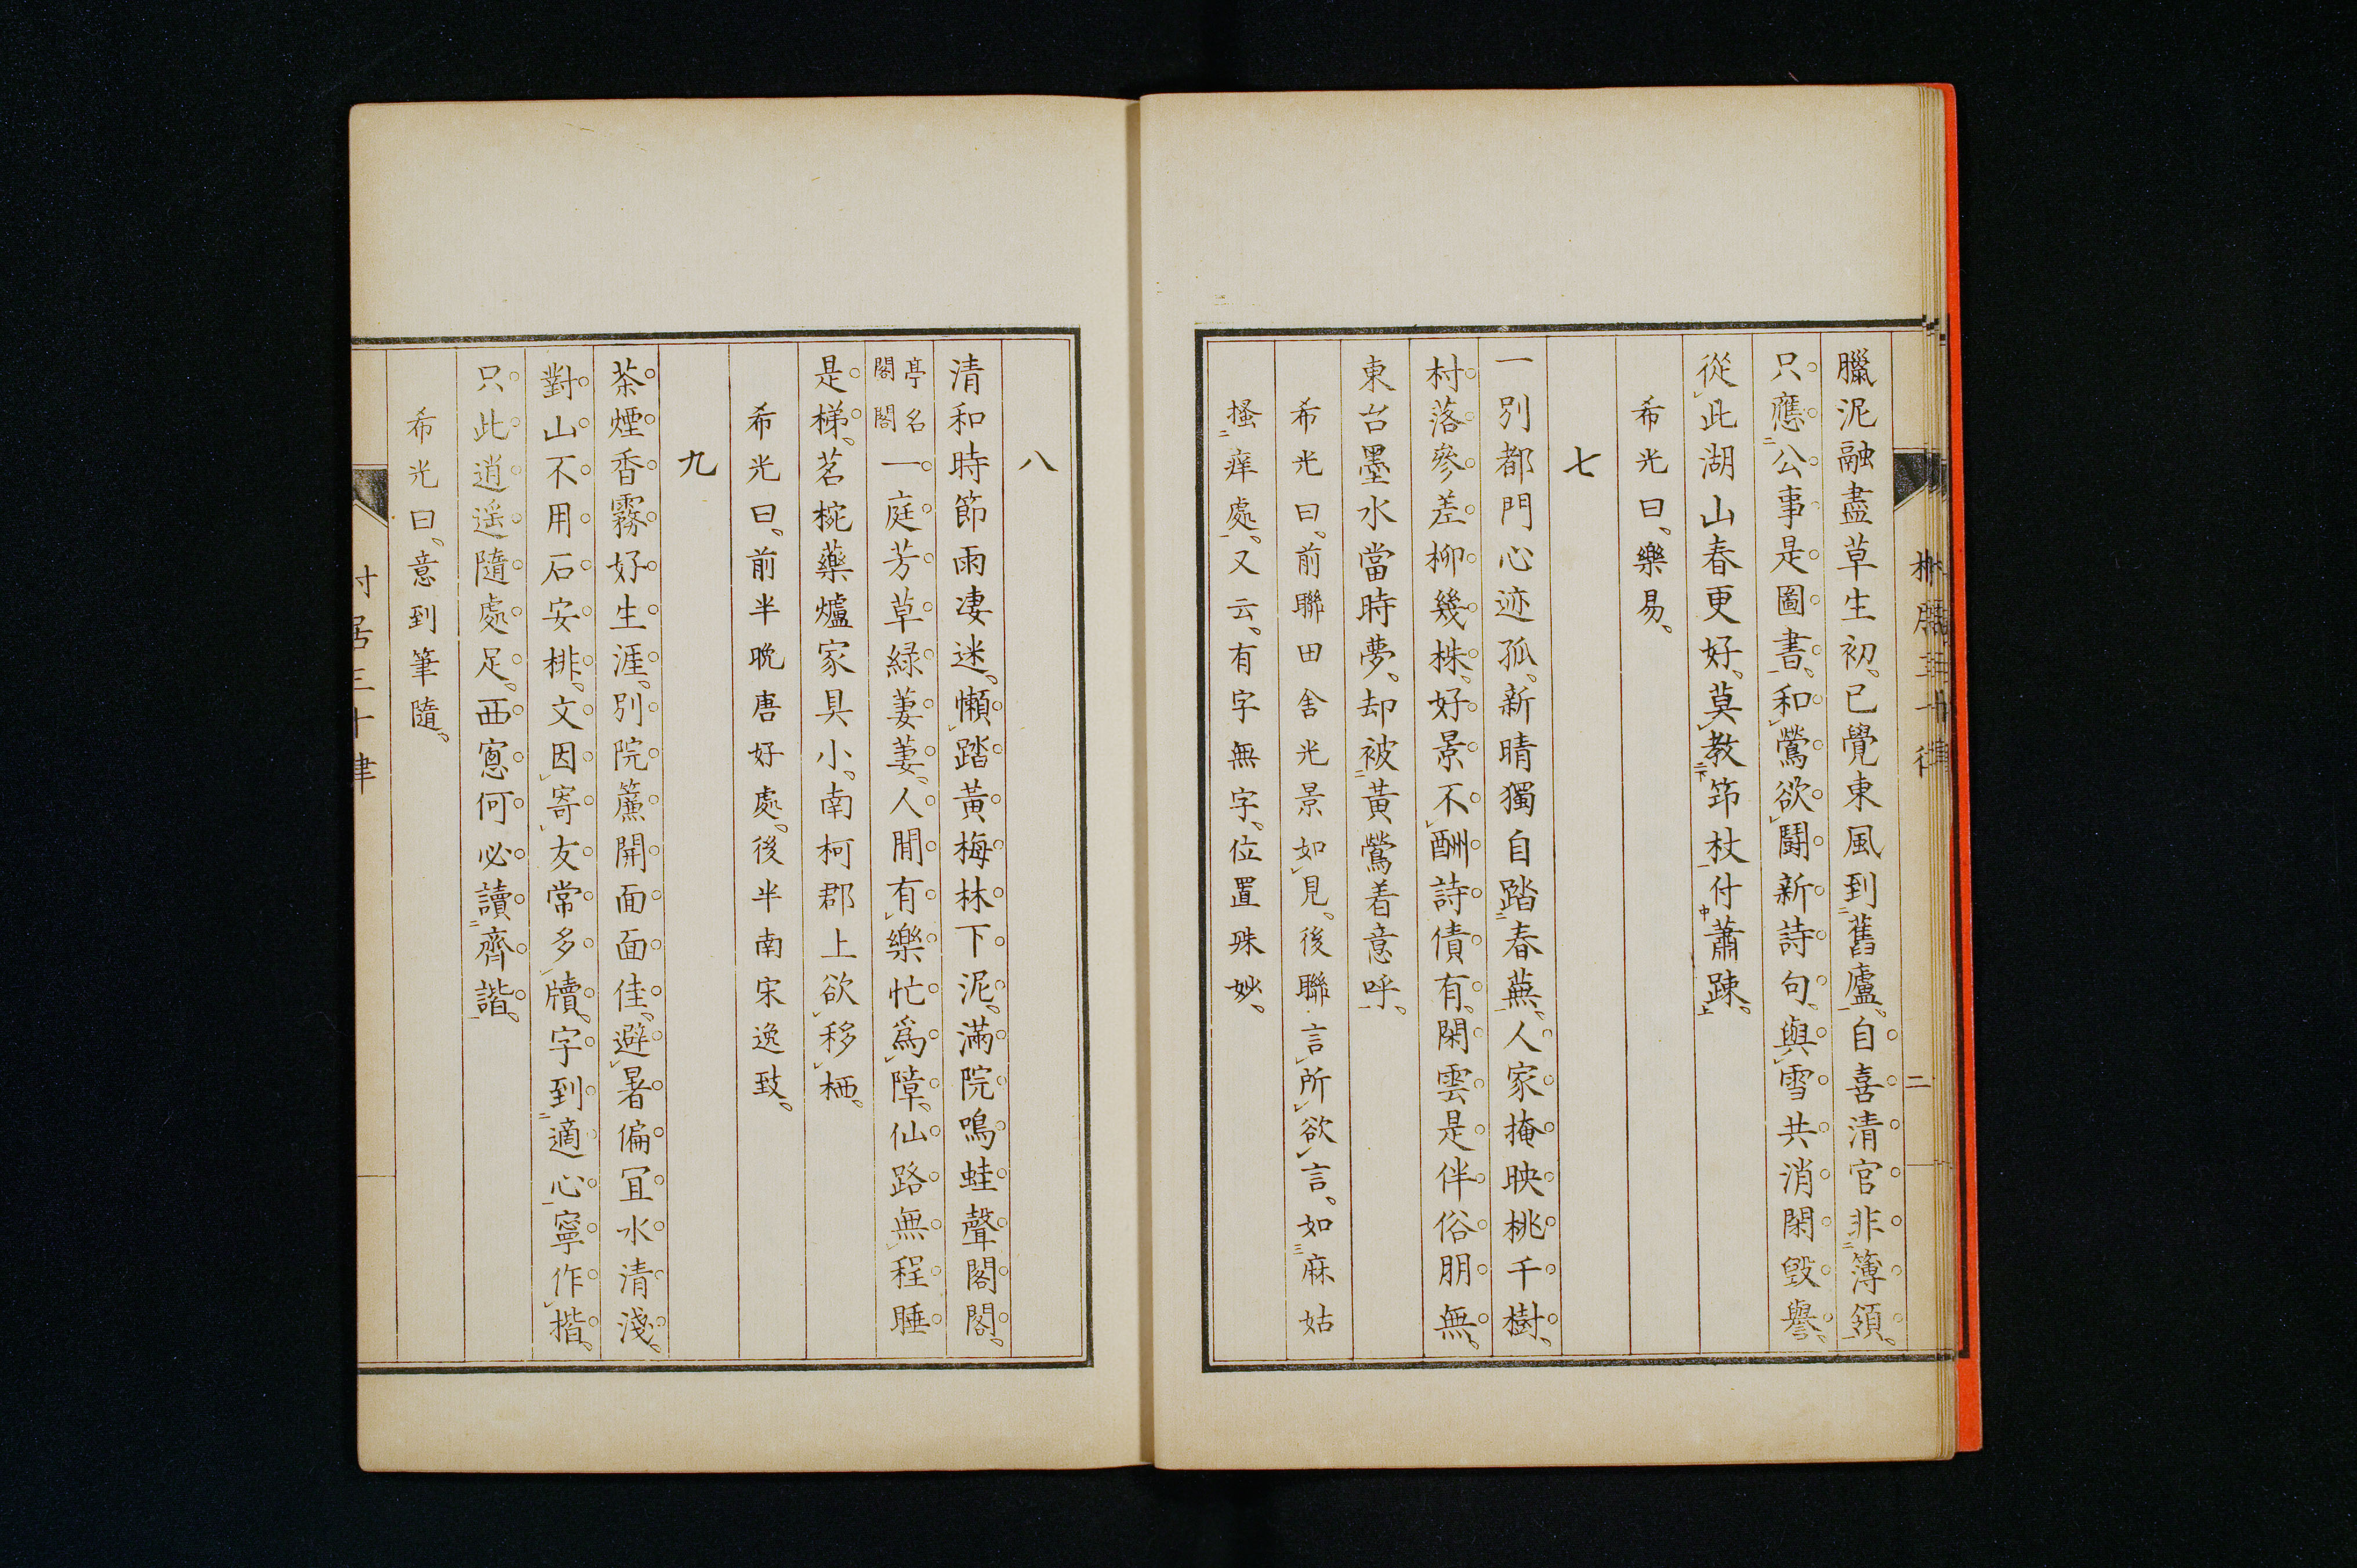 臘泥融盡草生初。已覺東風到舊廬。自喜清官非簿領。
只應公事是圖書。和鶯欲鬪新詩句。與雪共消閑毀譽。
從此湖山春更好。莫教笻杖付蕭踈。
希光曰。樂易。
七
一別都門心迹孤。新晴獨自踏春蕪。人家掩映桃千樹。
村落參差柳幾株。好景不酬詩債有。閑雲是伴俗朋無。
東台墨水當時夢。却被黃鶯着意呼。
希光曰。前聯田舍光景如見。後聯言所欲言。如麻姑
搔痒處。又云。有字無字。位置殊妙。
八
清和時節雨凄迷。懶踏黃梅林下泥。滿院鳴蛙聲閣閣。
亭名
閣閣
一庭芳草綠萋萋。人間有樂忙爲障。仙路無程睡
是梯。茗椀藥爐家具小。南柯郡上欲移栖。
希光曰。前半晚唐好處。後半南宋逸致。
九
茶煙香霧好生涯。別院簾開面面佳。避暑偏宜水清淺。
對山不用石安排。文因寄友常多牘。字到適心寧作楷。
只此逍遥隨處足。西窻何必讀齊諧。
希光曰。意到筆隨。
二